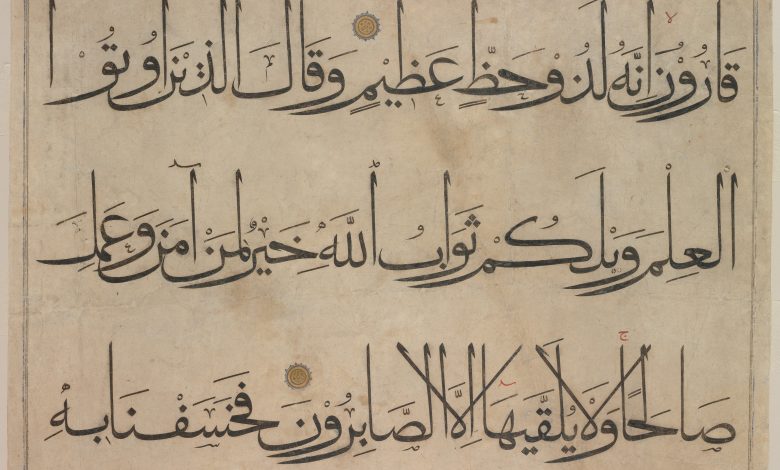 قَارُوْنُ اِنَّهُ لَذُوْحَظٍّ عَظِيْمٍ وَقَالَ الَّذِيْنَ اُوْتُوْا
الْعِلْمَ وَيْلَكُمْ ثَوَابُ اللّٰهِ خَيْرٌ لِمَنْ آمَنَ وَعَمِلَ
صَالِحًا وَلَا يُلَقّٰيهَا اِلَّا الصَّابِرُوْنَ فَخَسَفْنَا بِهِ